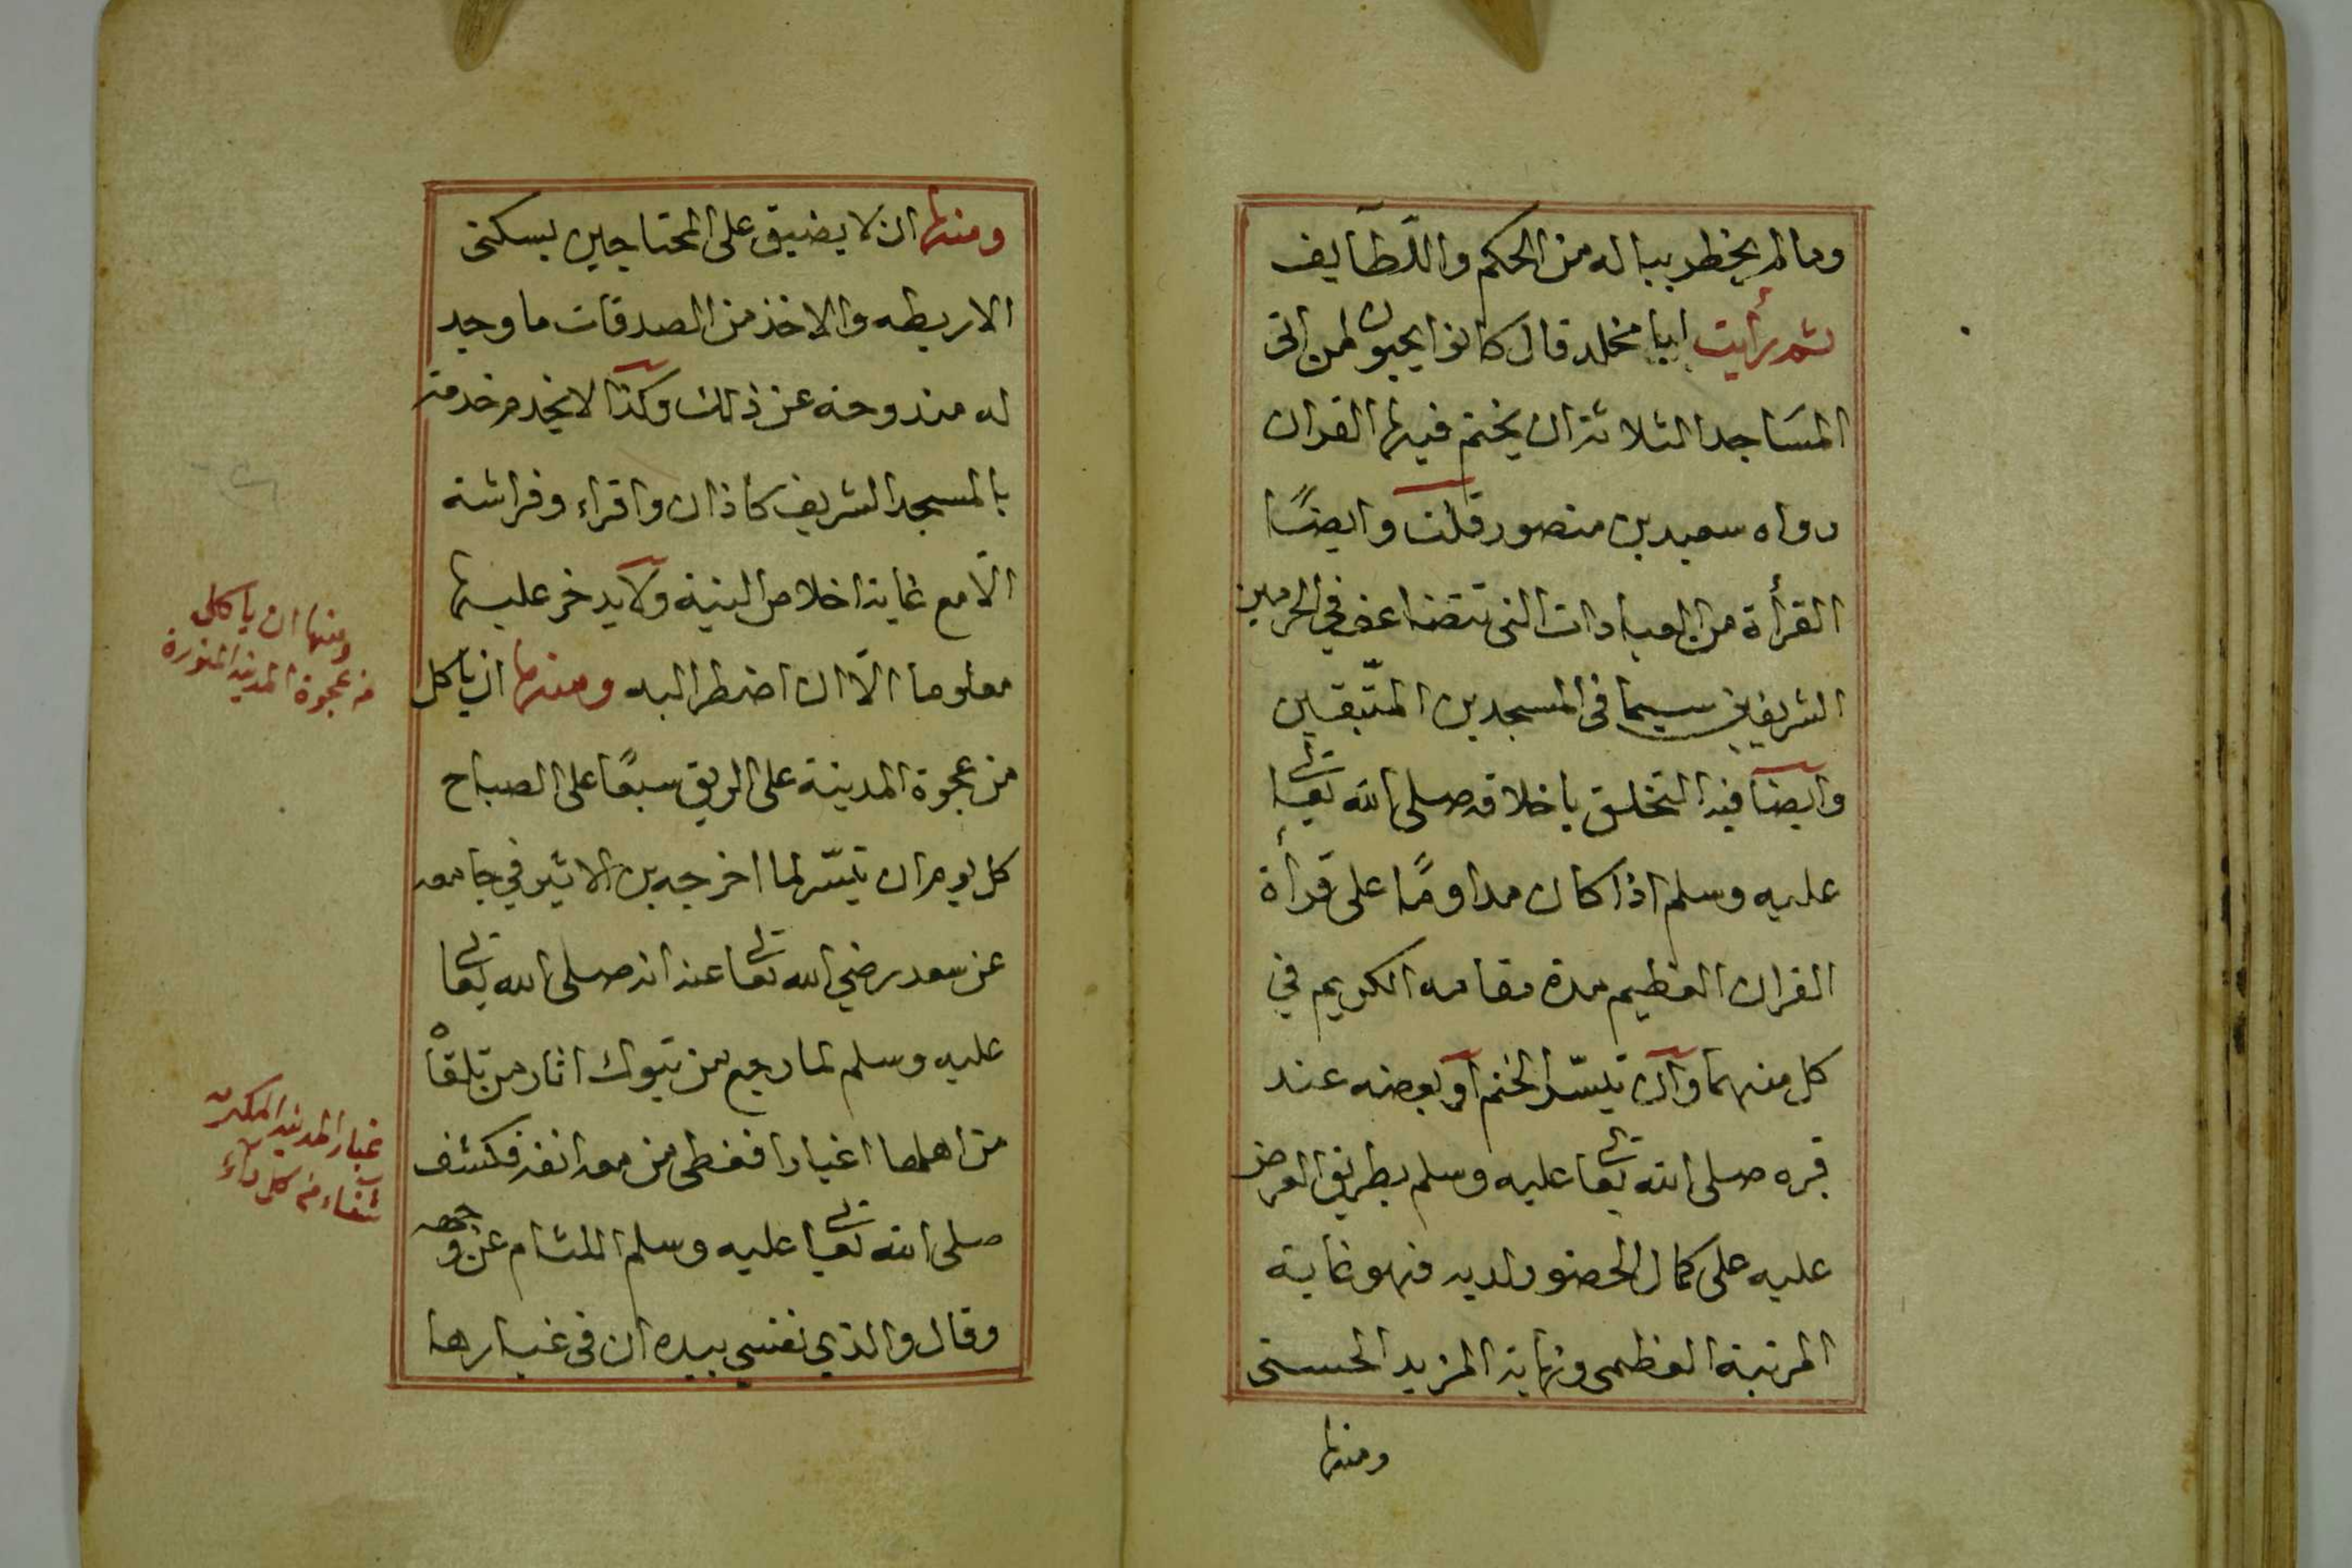 ومالم يخطر بباله من الحكم واللّطآيف
ثم رأيت ابا مخلد قال كانوا يحبون لمن اتى
المسَاجد الثلاثة ان يختم فيها القران
رواه سعيد بن منصور قلت وايضًا
القرأة من العبادات التى تتضاعف في الحرمين
الشريفين سيما فى المسجدين المتّبقين
وايضا فيه التخلق باخلاقه صلى الله تعالى
عليه وسلم اذا كان مداومًا على قرأة
القران العظيم مدة مقامه الكريم في
كل منهما وان تيسّر الختم او بعضه عند
قبره صلى الله تعالى عليه وسلم بطريق العرض
عليه على كمال الحضور لديه فهو غاية
المرتبة العظمى ونهاية المزيد الحسنى
ومنها
ومنها ان لا يضيق على المحتاجين بسكنى
الاربطه والاخذ من الصدقات ما وجد
له مندوحة عن ذلك وكذا لا يخدم خدمة
بالمسجد الشريف كاذان واقراء وفراشة
الّا مع غاية اخلاص النية ولا يدخر عليها
معلوما الّا ان اضطر اليه ومنها ان ياكل
من عجوة المدينة على الريق سبعًا على الصباح
كل يوم ان تيسّر لما اخرجه بن الاثير في جامعه
عن سعد رضي الله تعالى عنه انه صلى الله تعالى
عليه وسلم لما رجع من تبوك اثار من تلقاه
من اهلها اغبارا فغطى من معه انفه فكشف
صلى الله تعالى عليه وسلم اللثام عن وجهه
وقال والذي نفسي بيده ان فى غبارها
ومنها ان ياكل
من عجوة المدينة المنورة
غبار المدينة المكرمة
شفاء من كل داء